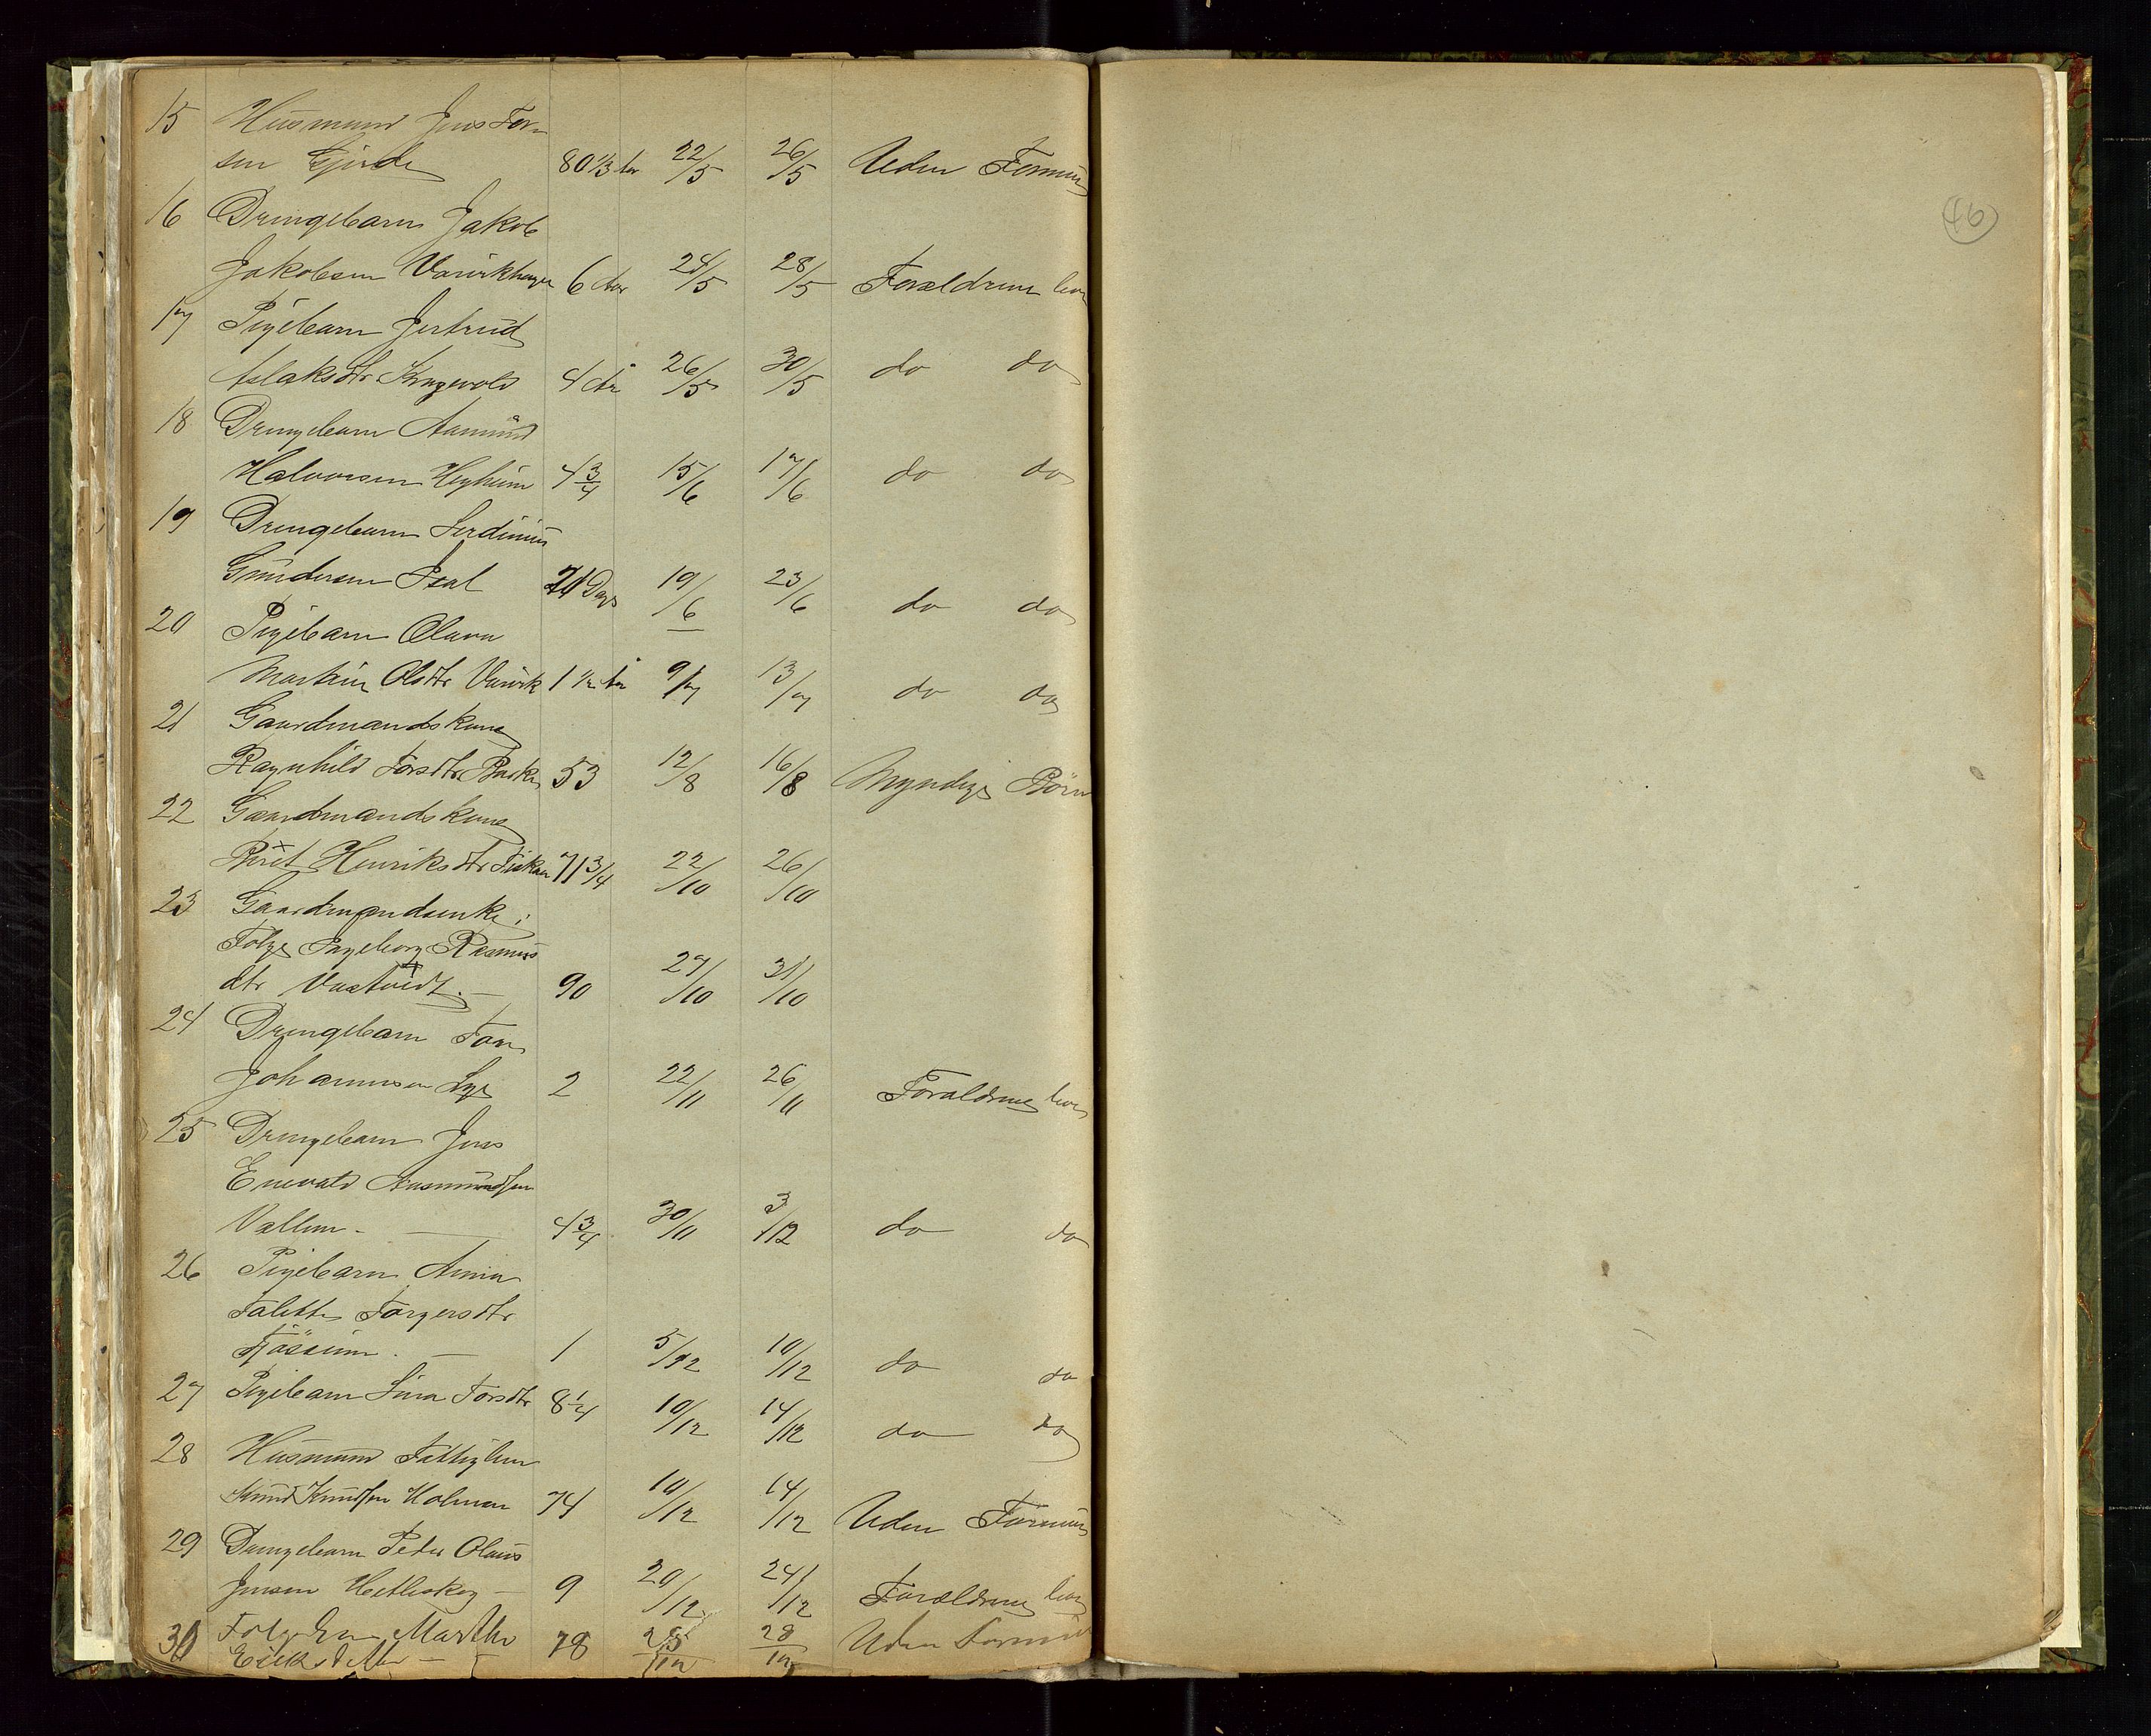 15 Husmand Jens Tor-
sen Gjerde 80 1/3 Aar 22/5 26/5 Uden Formue
16 Drengebarn Jakob
Jakobsen 6 Aar 24/5 28/5 Forældrene lever
17 Pigebarn Jertrud
Aslaksdtr 4 Aar 26/5 30/5 do do
18 Drengebarn Aamund
Halvorsen Høyheim 4 3/4 15/6 17/6 do do
19 Drengebarn Serdinius
Gundersen 21 Dage 19/6 23/6 do do
20 Pigebarn Olava
Martine Olsdtr Varvik 1 1/2 Aar 9/7 13/7 do do
21 Gaardmandskone
Ragnhild Torsdtr 53 12/8 16/8 Myndige Börn
22 Gaardmandskone
Berit Henriksdtr 71 3/4 22/10 26/10
23 Gaardmandsenke i
Følge Ingeborg Rasmus
dtr 90 27/10 31/10
24 Drengebarn Tore
Johannesen Lye 2 22/11 26/11 Forældrene lever
25 Drengebarn Jens
Enevald Aasmundsen
4 3/4 30/11 3/12 do do
26 Pigebarn Anna
Talette Torgersdtr
1 5/12 10/12 do do
27 Pigebarn Sina Torsdtr 8 1/4 10/12 14/12 do do
28 Husmand Fattiglem
Knud Knudsen Holmen 74 10/12 14/12 Uden Formue
29 Drengebarn Peter Olaus
Jensen 9 20/12 24/12 Forældrene lever
30 Marthe
78 25/12 28/12 Uden Formue
46